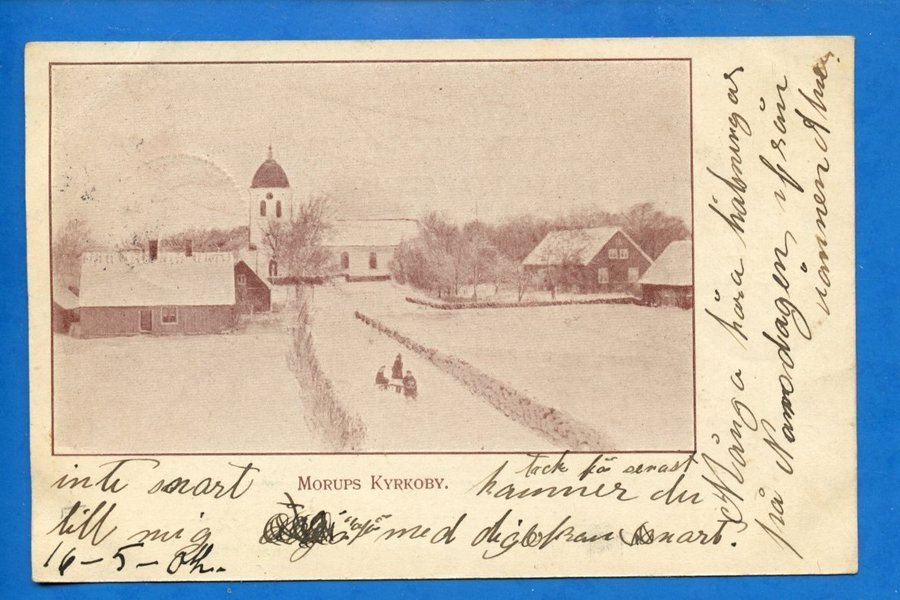 MORUPS KYRKOBY.
Många kära hälsningar
på Namsdagen ifrån
vännen
tack för senast
inte snart kammer du
till mig med dig snart.
16-5-04.